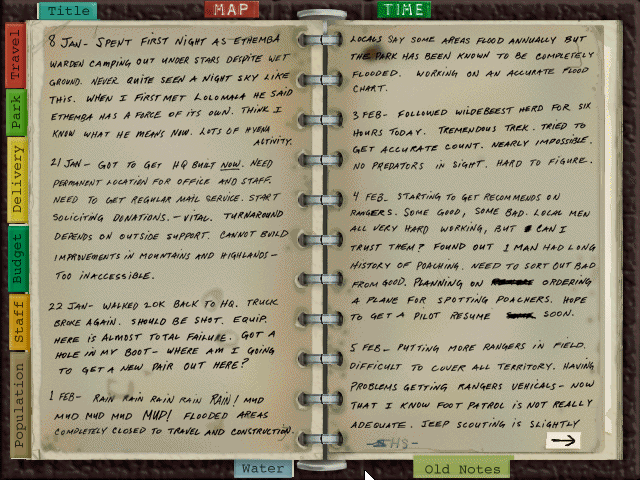 Title
MAP
TIME
Travel
Park
Delivery
Budget
Staff
Population
8 JAN- SPENT FIRST NIGHT AS ETHEMBA
WARDEN CAMPING OUT UNDER STARS DESPITE WET
GROUND. NEVER QUITE SEEN A NIGHT SKY LIKE
THIS. WHEN I FIRST MET LOLOMALA HE SAID
ETHEMBA HAS A FORCE OF ITS OWN. THINK I
KNOW WHAT HE MEANS NOW. LOTS OF HYENA
ACTIVITY.
21 JAN- GOT TO GET HQ BUILT NOW. NEED
PERMANENT LOCATION FOR OFFICE AND STAFF.
NEED TO GET REGULAR MAIL SERVICE. START
SOLICITING DONATIONS. -VITAL. TURNAROUND
DEPENDS ON OUTSIDE SUPPORT. CANNOT BUILD
IMPROVEMENTS IN MOUNTAINS AND HIGHLANDS-
TOO INACCESSIBLE.
22 JAN- WALKED 20K BACK TO HQ. TRUCK
BROKE AGAIN. SHOULD BE SHOT. EQUIP.
HERE IS ALMOST TOTAL FAILURE. GOT A
HOLE IN MY BOOT- WHERE AM I GOING
TO GET A NEW PAIR OUT HERE?
1 FEB- RAIN RAIN RAIN RAIN RAIN! MUD
MUD MUD MUD MUD! FLOODED AREAS
COMPLETELY CLOSED TO TRAVEL AND CONSTRUCTION.
LOCALS SAY SOME AREAS FLOOD ANNUALLY BUT
THE PARK HAS BEEN KNOWN TO BE COMPLETELY
FLOODED. WORKING ON AN ACCURATE FLOOD
CHART.
3 FEB- FOLLOWED WILDEBEEST HERD FOR SIX
HOURS TODAY. TREMENDOUS TREK. TRIED TO
GET ACCURATE COUNT. NEARLY IMPOSSIBLE.
NO PREDATORS IN SIGHT. HARD TO FIGURE.
4 FEB- STARTING TO GET RECOMMENDS ON
RANGERS. SOME GOOD, SOME BAD. LOCAL MEN
ALL VERY HARD WORKING, BUT CAN I
TRUST THEM? FOUND OUT 1 MAN HAD LONG
HISTORY OF POACHING. NEED TO SORT OUT BAD
FROM GOOD. PLANNING ON ORDERING
A PLANE FOR SPOTTING POACHERS. HOPE
TO GET A PILOT RESUME SOON.
5 FEB- PUTTING MORE RANGERS IN FIELD.
DIFFICULT TO COVER ALL TERRITORY. HAVING
PROBLEMS GETTING RANGERS VEHICALS- NOW
THAT I KNOW FOOT PATROL IS NOT REALLY
ADEQUATE. JEEP SCOUTING IS SLIGHTLY
Water
Old Notes